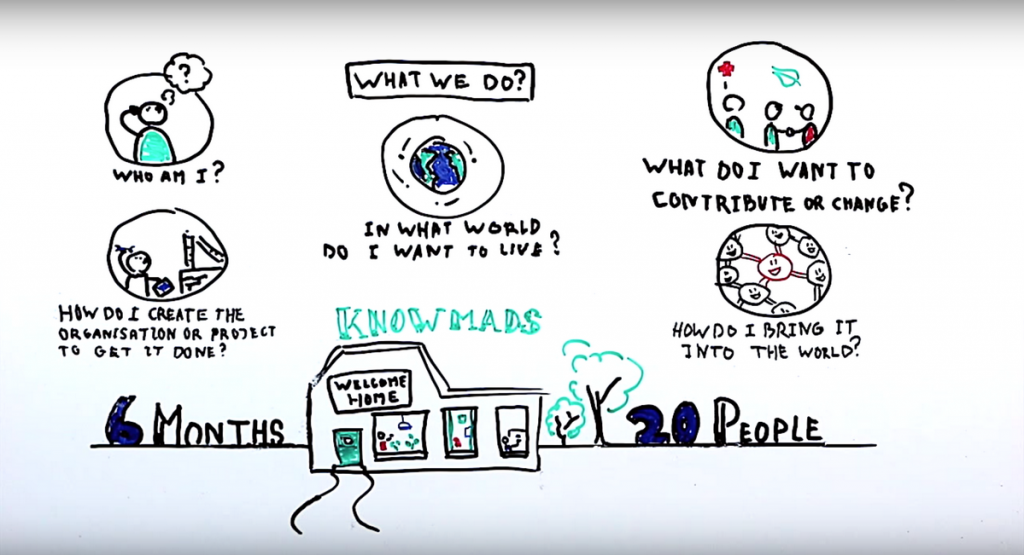 WHAT WE DO?
?
WHO AM I?
IN WHAT WORLD
DO I WANT TO LIVE?
WHAT DO I WANT TO
CONTRIBUTE OR CHANGE?
HOW DO I CREATE THE
ORGANISATION OR PROJECT
TO GET IT DONE?
HOW DO I BRING IT
INTO THE WORLD?
KNOWMADS
WELCOME
HOME
6 MONTHS
20 PEOPLE